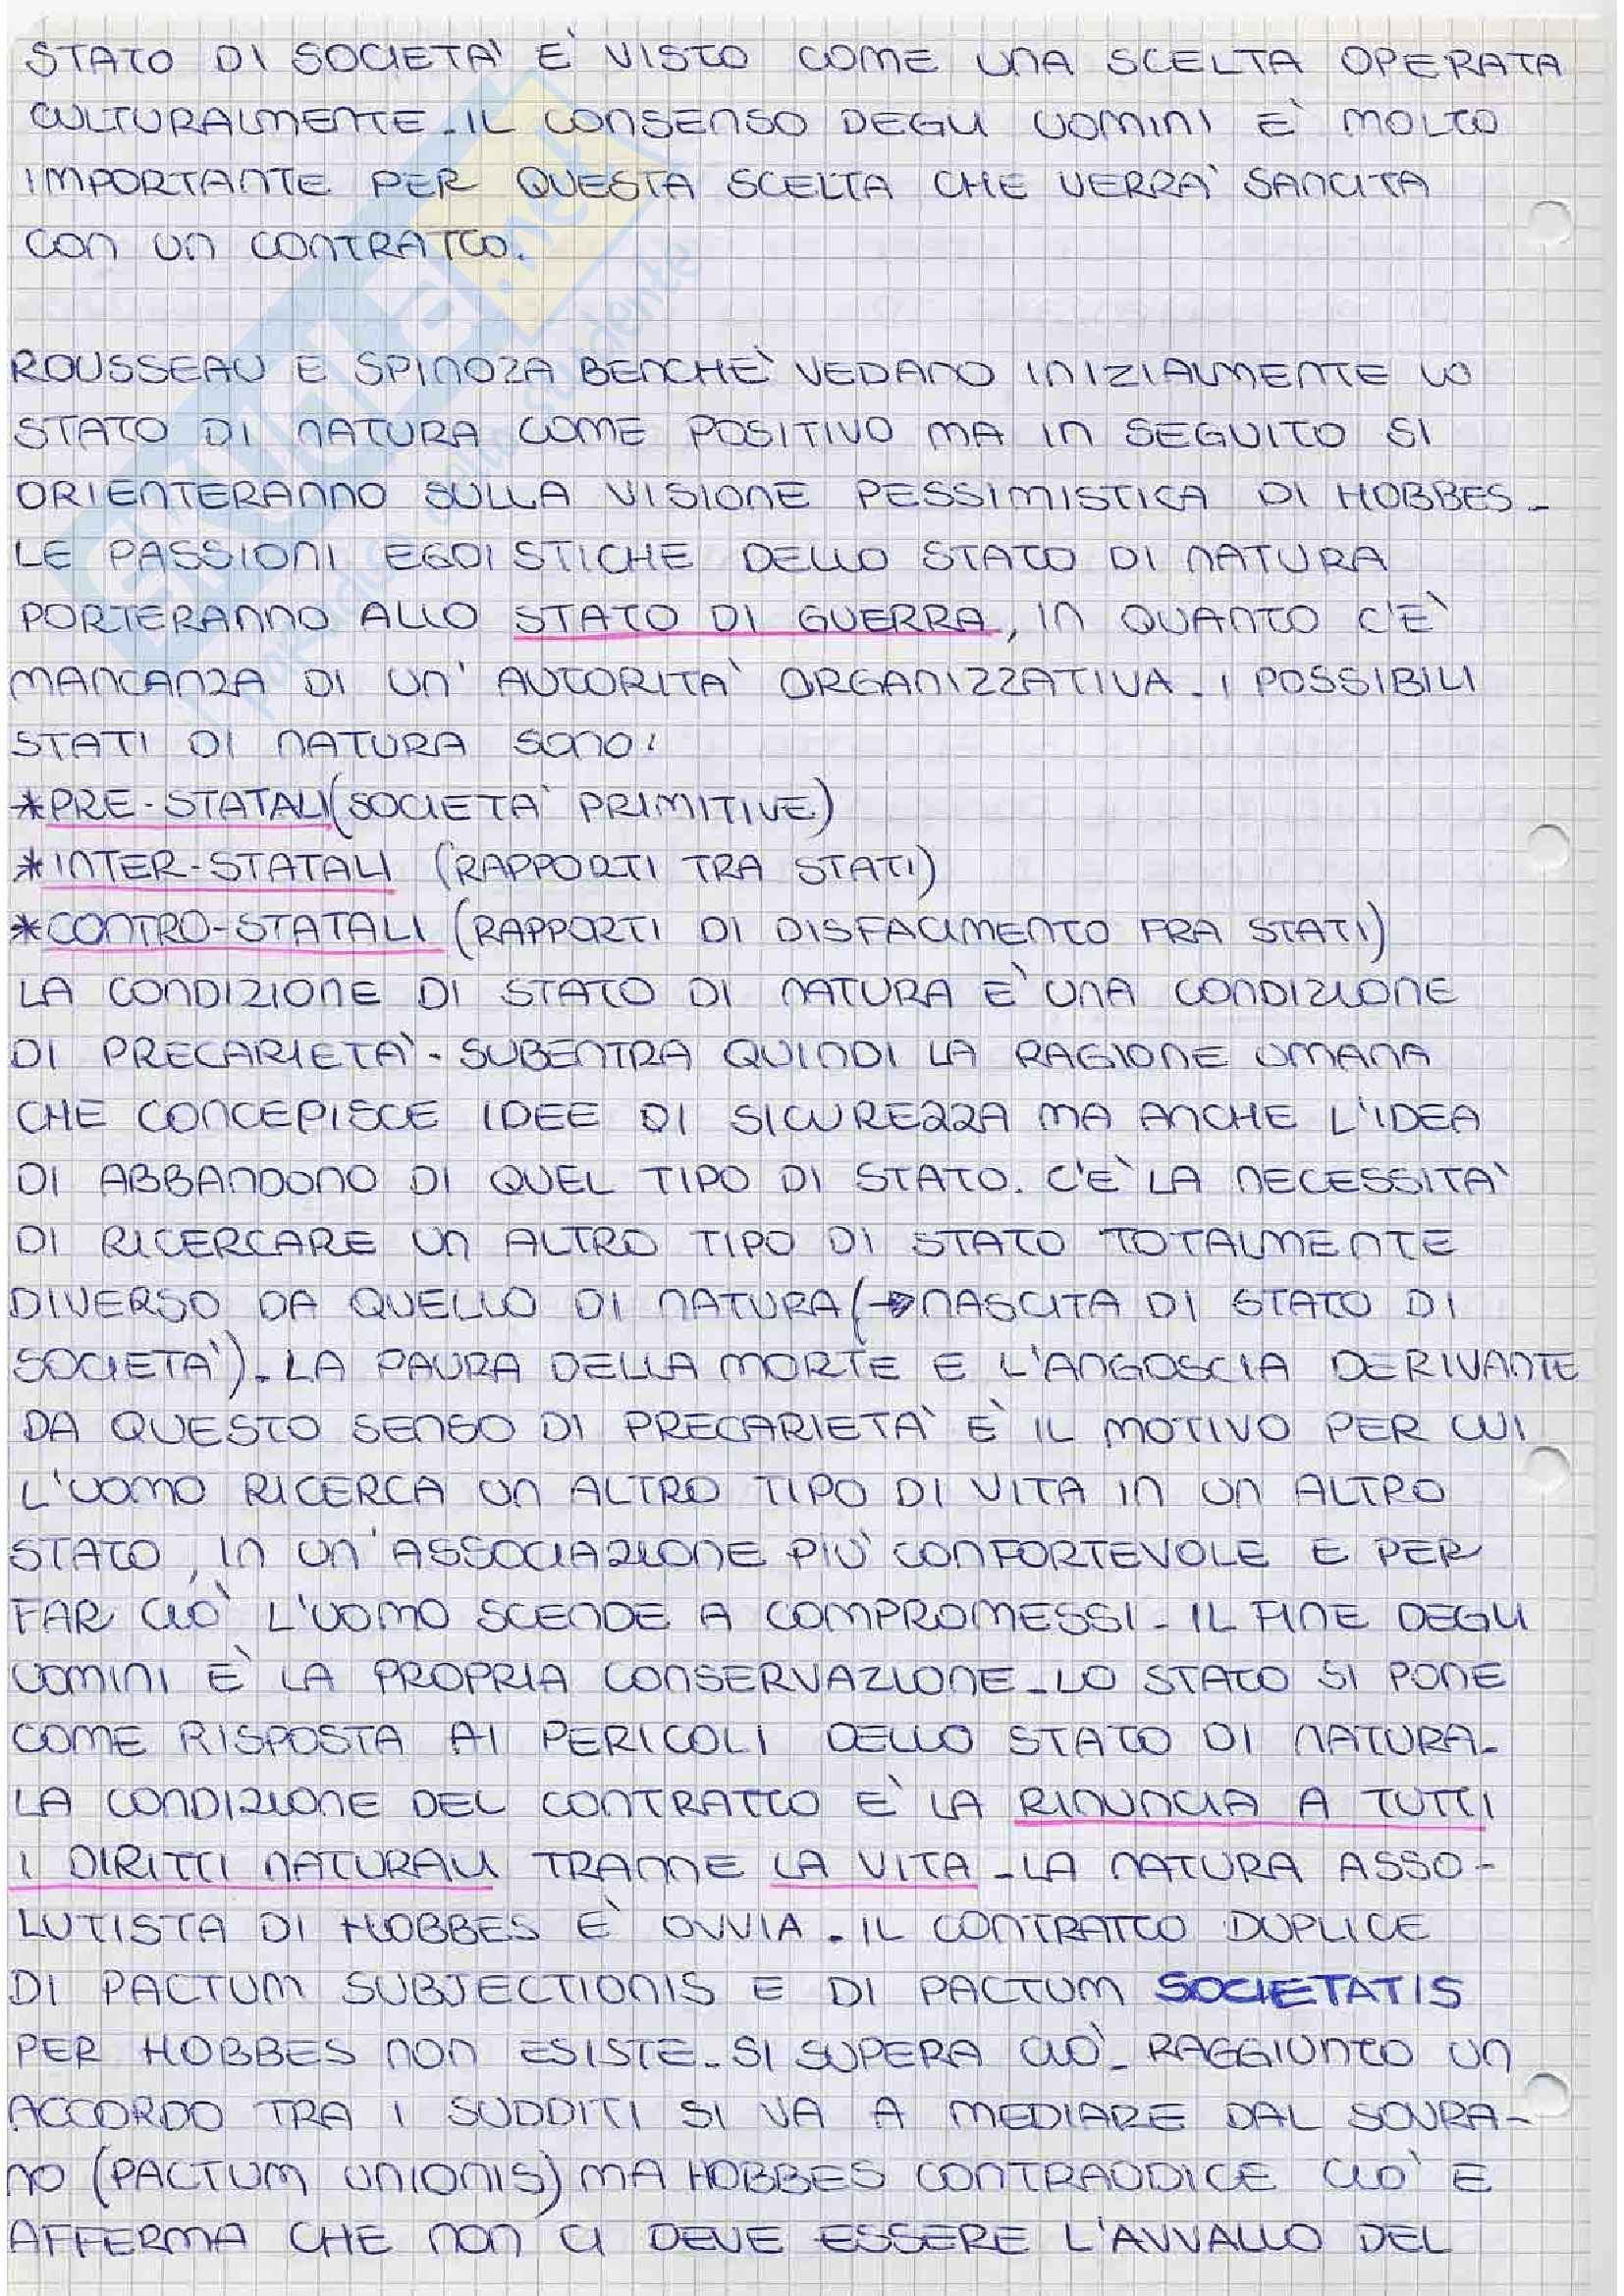 STATO DI SOCIETA' E' VISTO COME UNA SCELTA OPERATA
CULTURALMENTE. IL CONSENSO DEGLI UOMINI E' MOLTO
IMPORTANTE PER QUESTA SCELTA CHE VERRA' SANCITA
CON UN CONTRATTO.
ROUSSEAU E SPINOZA BENCHE' VEDANO INIZIALMENTE LO
STATO DI NATURA COME POSITIVO MA IN SEGUITO SI
ORIENTERANNO SULLA VISIONE PESSIMISTICA DI HOBBES.
LE PASSIONI EGOISTICHE DELLO STATO DI NATURA
PORTERANNO ALLO STATO DI GUERRA, IN QUANTO C'E'
MANCANZA DI UN' AUTORITA' ORGANIZZATIVA. I POSSIBILI
STATI DI NATURA SONO:
*PRE-STATALI (SOCIETA' PRIMITIVE)
*INTER-STATALI (RAPPORTI TRA STATI)
*CONTRO-STATALI (RAPPORTI DI DISFACIMENTO FRA STATI)
LA CONDIZIONE DI STATO DI NATURA E' UNA CONDIZIONE
DI PRECARIETA'. SUBENTRA QUINDI LA RAGIONE UMANA
CHE CONCEPISCE IDEE DI SICUREZZA MA ANCHE L'IDEA
DI ABBANDONO DI QUEL TIPO DI STATO. C'E' LA NECESSITA'
DI RICERCARE UN ALTRO TIPO DI STATO TOTALMENTE
DIVERSO DA QUELLO DI NATURA (→ NASCITA DI STATO DI
SOCIETA'). LA PAURA DELLA MORTE E L'ANGOSCIA DERIVANTE
DA QUESTO SENSO DI PRECARIETA' E' IL MOTIVO PER CUI
L'UOMO RICERCA UN ALTRO TIPO DI VITA IN UN ALTRO
STATO, IN UN'ASSOCIAZIONE PIU' CONFORTEVOLE E PER
FAR CIO' L'UOMO SCENDE A COMPROMESSI. IL FINE DEGLI
UOMINI E' LA PROPRIA CONSERVAZIONE. LO STATO SI PONE
COME RISPOSTA AI PERICOLI DELLO STATO DI NATURA.
LA CONDIZIONE DEL CONTRATTO E' LA RINUNCIA A TUTTI
I DIRITTI NATURALI TRANNE LA VITA. LA NATURA ASSO-
LUTISTA DI HOBBES E' OVVIA. IL CONTRATTO DUPLICE
DI PACTUM SUBJECTIONIS E DI PACTUM SOCIETATIS
PER HOBBES NON ESISTE. SI SUPERA CIO'. RAGGIUNTO UN
ACCORDO TRA I SUDDITI SI VA A MEDIARE DAL SOVRA-
NO (PACTUM UNIONIS) MA HOBBES CONTRADDICE CIO' E
AFFERMA CHE NON CI DEVE ESSERE L'AVVALLO DEL